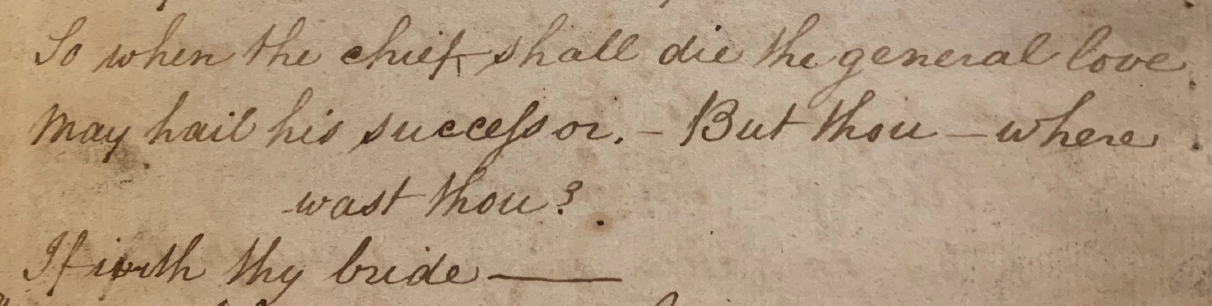 So when the chief shall die the general love
May hail his successor. – But thou – where
wast thou?
If with thy bride ——